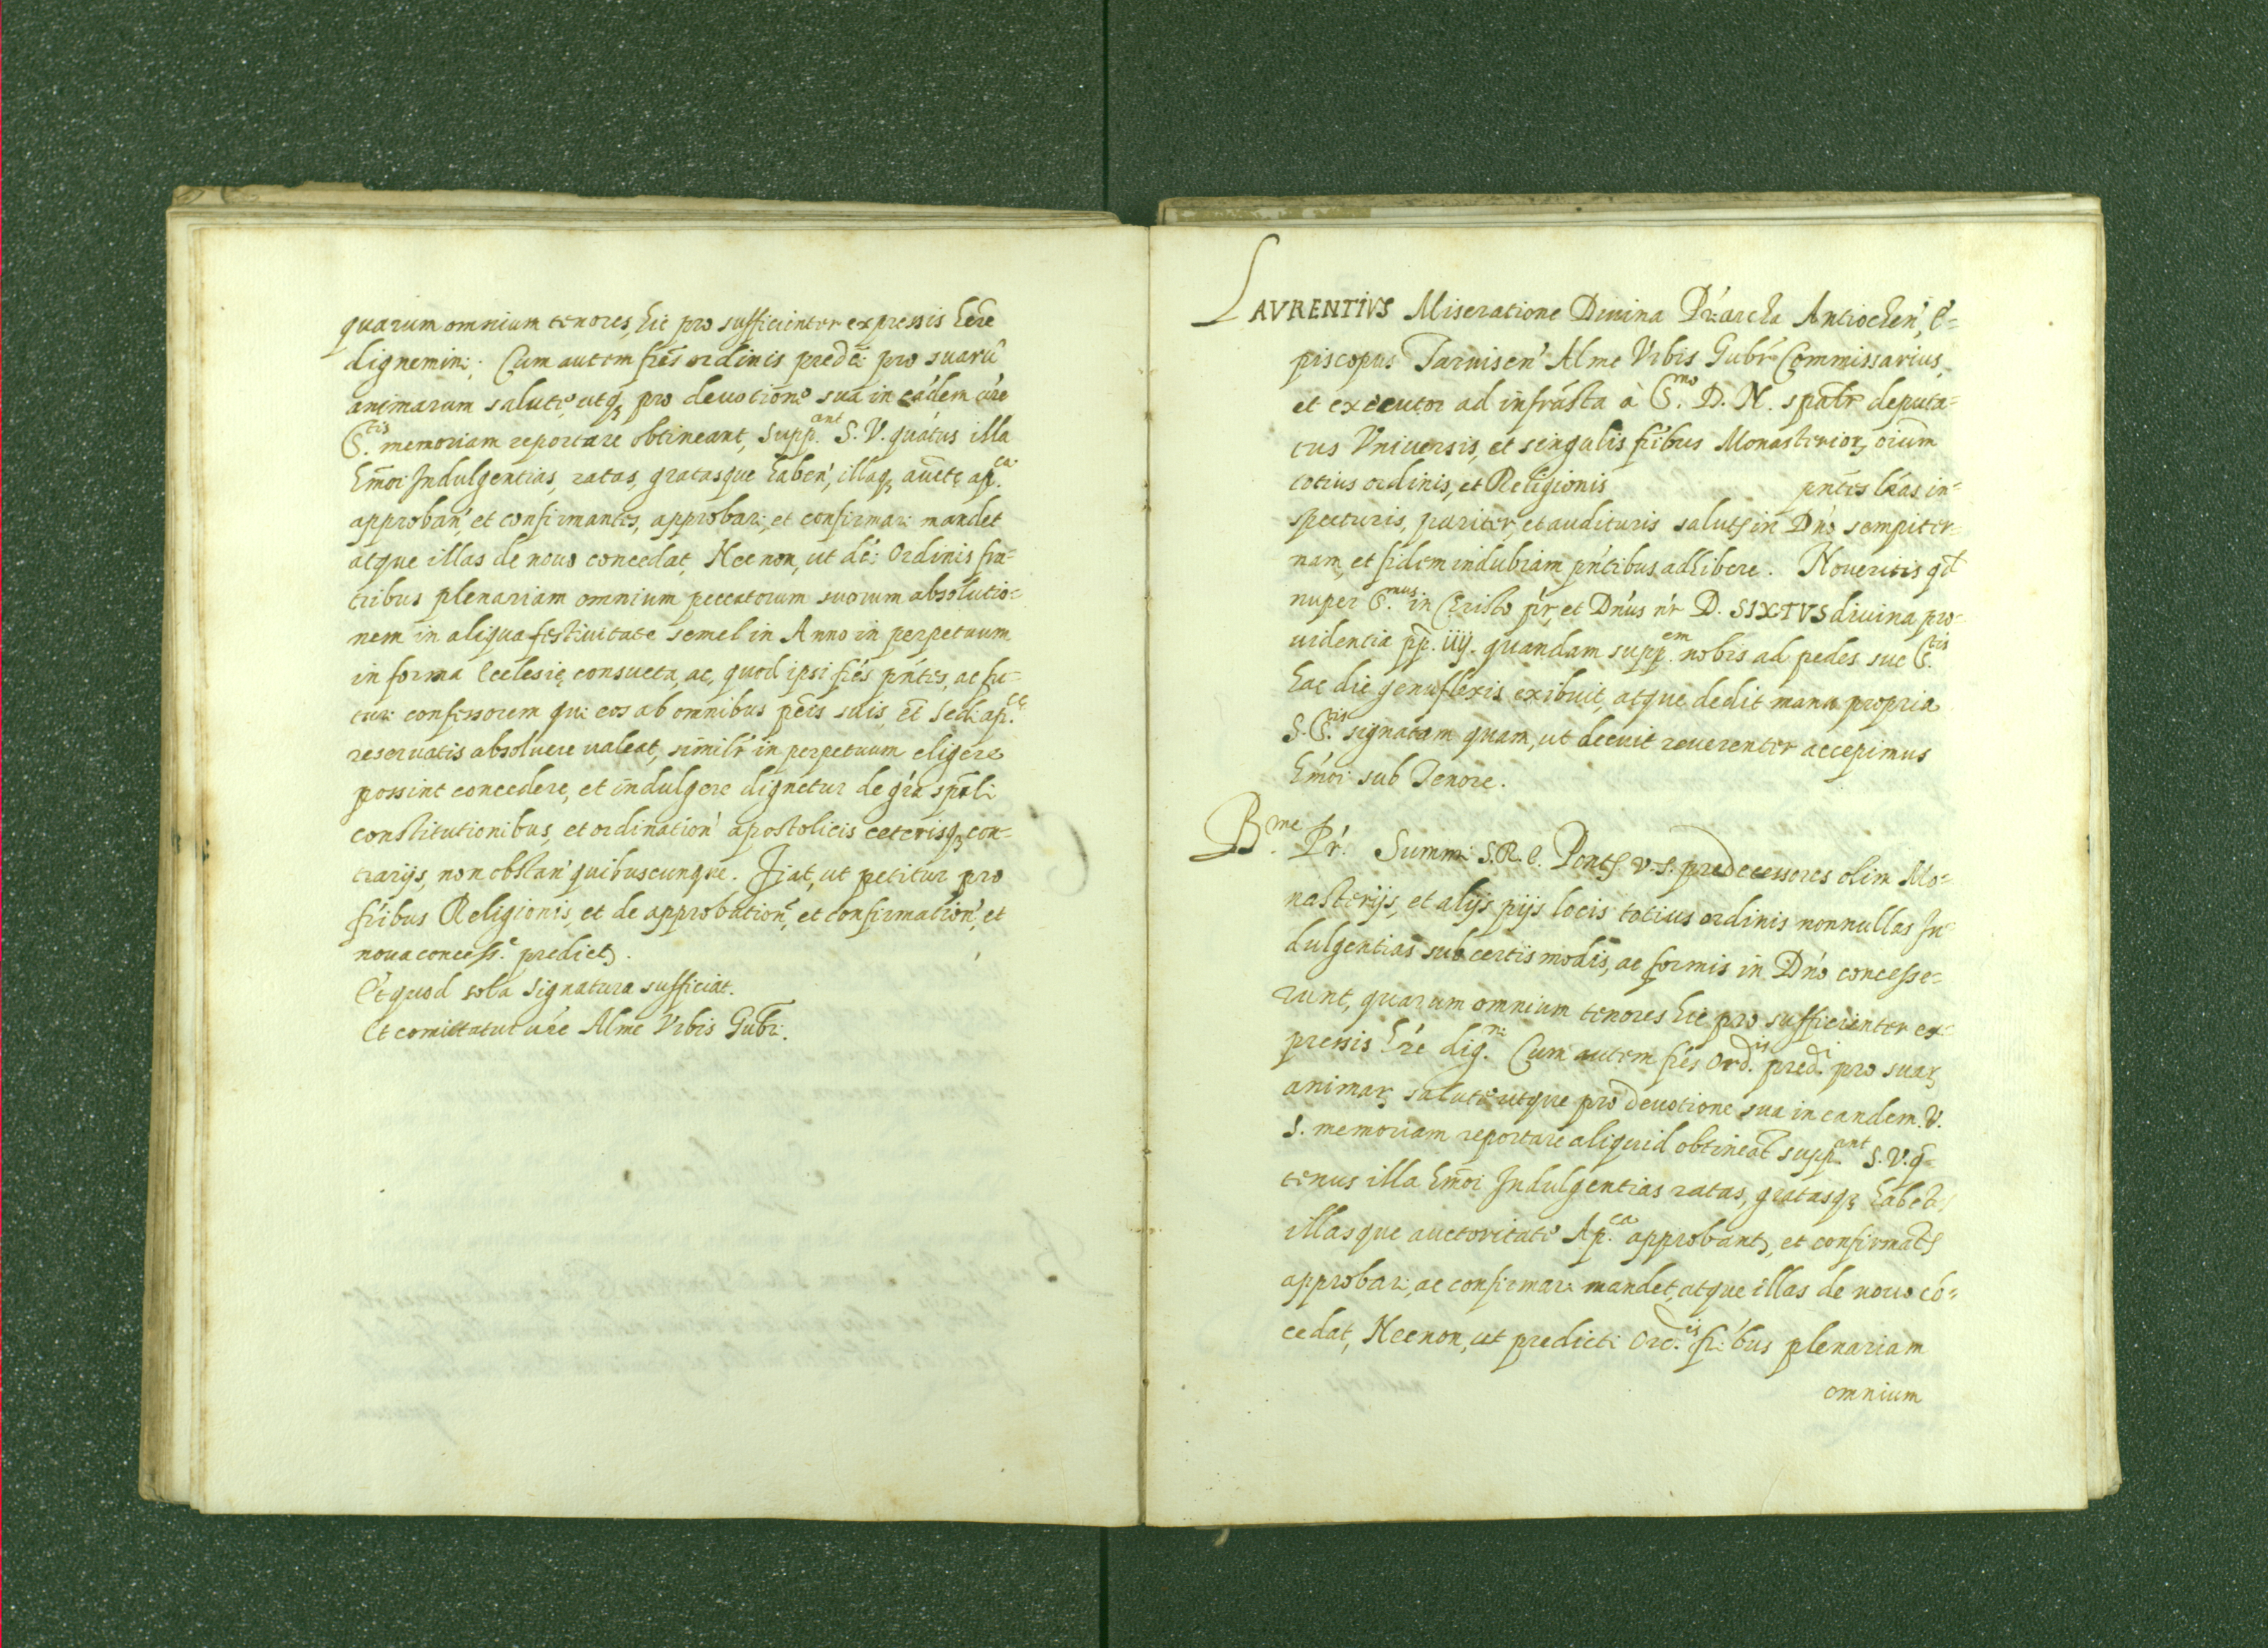 quarum omnium tenores, hic pro sufficienter expressis h̃ere
dignemini. Cum autem fr̃es ordinis pred̃ci pro suarũ
animarum salute, utq₃ pro devotione sua in eádem v́re
S.tis memoriam reportare obtineant, supp.ant S. V. quátus illa
hm̃oi Indulgentias, ratas, gratasque haben', illaq₃ aucte ap.ca
approban', et confirmantes, approbari, et confirmari mandet
atque illas de nouo concedat, Nec non, ut dc̃i Ordinis fra=
tribus plenariam omnium peccatorum suorum absolutio=
nem in aliqua festiuitate semel in Anno in perpetuum
in forma Ecclesię consueta, ac, quod ipsi fŕes pńtes, ac fu=
turi confessorem qui eos ab omnibus pc̃tis suis et̃ Sedi ap.ce
reservatis absoluere ualeat, similr̃ in perpetuum eligere
possint concedere, et indulgere dignetur de gŕa spãli
constitutionibus, et ordination' apostolicis ceterisq₃ con=
trarijs, non obstan' quibuscunque. Fiat, ut petitur pro
fŕibus Religionis, et de approbatione, et confirmation', et
noua concess.e predict₃.
Et quod sola signatura sufficiat.
Et comittatur vŕe Alme Vrbis Gubr̃i.
LAVRENTIVS Miseratione Diuina Pŕiarcha Antiochen', E=
piscopus Taruisen' Alme Vrbis Gubr̃ Commissarius,
et executor ad infrásta à S.mo D. N. spãlr deputa=
tus Vniuersis, et singulis fŕibus Monasterior₃ oĩum
totius ordinis, et Religionis pñtes lŕas in=
specturis, pariter, et audituris salutẽ in Dńo sempiter=
nam, et fidem indubiam pńtibus adhibere. Noueritis qđ
nuper S.mus in Christo pŕ, et Dńus nŕ D. SIXTVS diuina pro=
uidentia pp. iiij. quandam supp.em nobis ad pedes sue S.tis
hac die genuflexis exibuit, atque dedit manu propria
S. S.tis signatam quam, ut decuit reuerenter accepimus
hḿoi sub Tenore.
B.me Pŕ. Summi S. R. E. Pontes v. s. predecessores olim Mo=
nasterijs, et alijs pijs locis totius ordinis nonnullas In=
dulgentias sub certis modis, ac formis in Dńo concesse=
runt, quarum omnium tenores hic pro sufficienter ex=
pressis hŕe dig.ni Cum autem fŕes Ord.is pred.i pro suar₃
animar₃ salute utque pro deuotione sua in eandem. V.
S. memoriam reportare aliquid obtineãt supp.ant S. V. q̃=
tenus illa hm̃oi Indulgentias ratas, gratasq₃ habeat
illasque auctoritate Ap.ca approbant₃, et confirmats
approbari, ac confirmari mandet, atque illas de nouo có=
cedat, Nec non, ut predicti Ord.is fŕibus plenariam
omnium